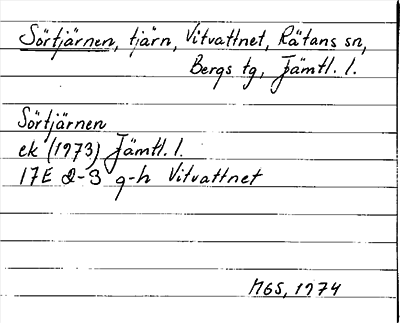 Sörtjärnen, tjärn, Vitvattnet, Rätans sn,
Bergs tg, Jämtl. l.
Sörtjärnen
ek (1973) Jämtl. l.
17E 2-3 g-h Vitvattnet
MGS, 1974